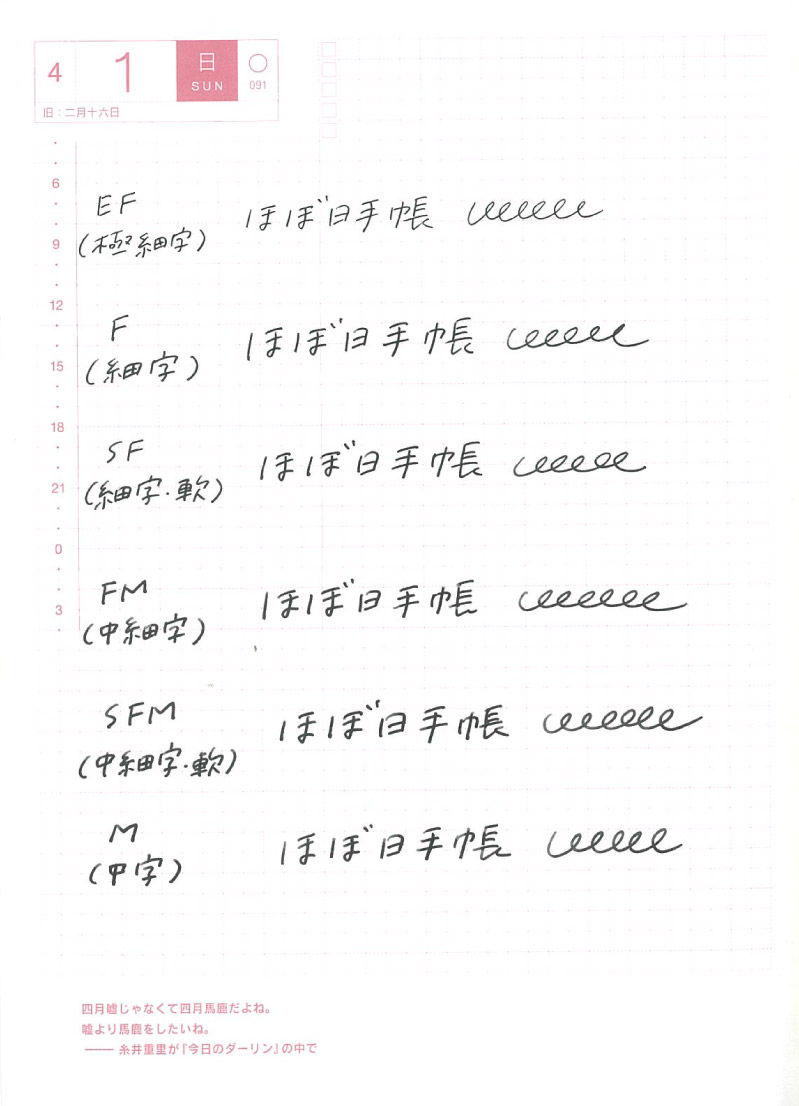 4 1 日 SUN 091
旧：二月十六日
6
EF ほぼ日手帳
9
(極細字)
12
F ほぼ日手帳
15
(細字)
18
SF ほぼ日手帳
21
(細字・軟)
0
FM ほぼ日手帳
3
(中細字)
SFM ほぼ日手帳
(中細字・軟)
M ほぼ日手帳
(中字)
四月嘘じゃなくて四月馬鹿だよね。
嘘より馬鹿をしたいね。
—— 糸井重里が『今日のダーリン』の中で